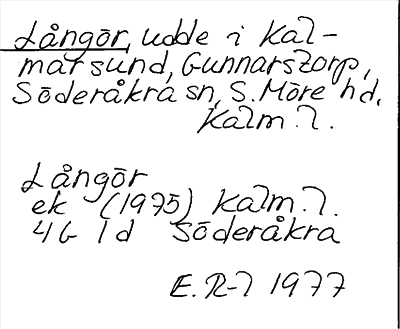 Långör, udde i Kal-
marsund, Gunnarstorp,
Söderåkra sn, S. Möre hd,
Kalm. l.
Långör
ek (1975) Kalm. l.
4G 1d Söderåkra
E. R-l 1977